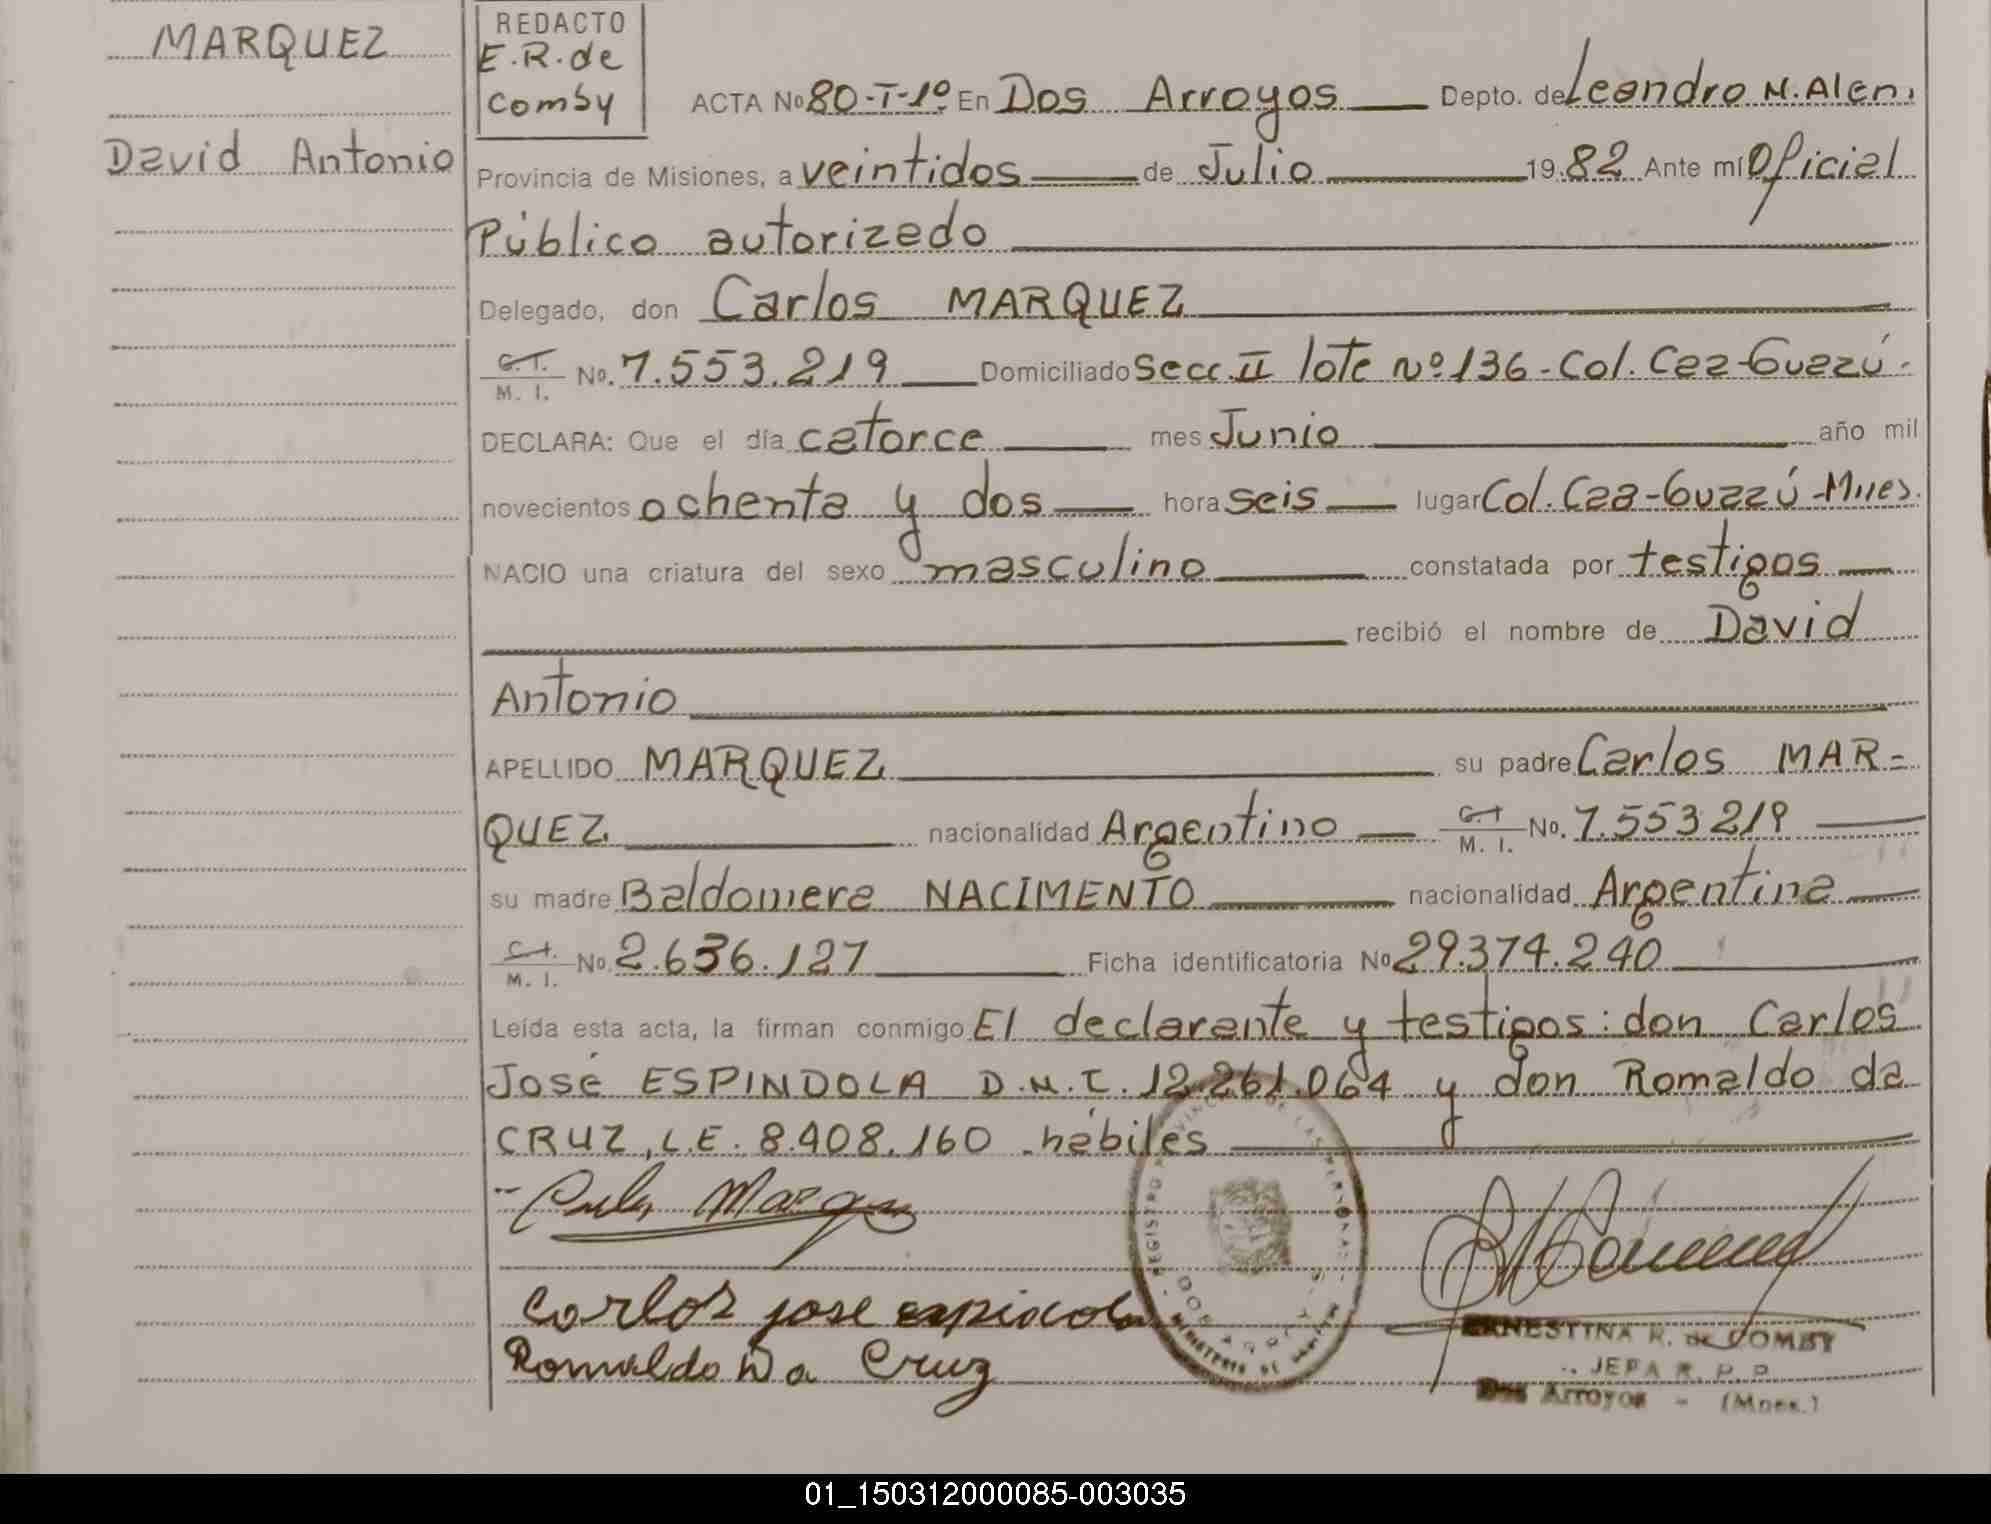 MARQUEZ
David Antonio
REDACTO
E.R. de
Comby
ACTA No 80-I-1º En Dos Arroyos Depto. de Leandro N. Alen.
Provincia de Misiones, a veintidos de Julio 19 82 Ante mí Oficial
Público autorizado
Delegado, don Carlos MARQUEZ
C. I.
M. I. No. 7.553.219 Domiciliado Secc. II lote nº 136 - Col. Caa-Guazú -
DECLARA: Que el día catorce mes Junio año mil
novecientos ochenta y dos hora seis lugar Col. Caa-Guazú - Mnes.
NACIO una criatura del sexo masculino constatada por testigos
recibió el nombre de David
Antonio
APELLIDO MARQUEZ su padre Carlos MAR=
QUEZ nacionalidad Argentino C. I.
M. I. No. 7.553.219
su madre Baldomera NACIMENTO nacionalidad Argentina
C. I.
M. I. No. 2.636.127 Ficha identificatoria No 29.374.240
Leída esta acta, la firman conmigo El declarante y testigos: don Carlos
José ESPINDOLA D.N.I. 12.261.064 y don Romaldo da
CRUZ, L.E. 8.408.160 - hábiles
Carlos Marquez
Carlos jose espindola
Romaldo Da Cruz
REGISTRO PROVINCIAL DE LAS PERSONAS
DOS ARROYOS
MINISTERIO DE
ERNESTINA R. de COMBY
JEFA R. P. P.
Dos Arroyos - (Mnes.)
01_150312000085-003035